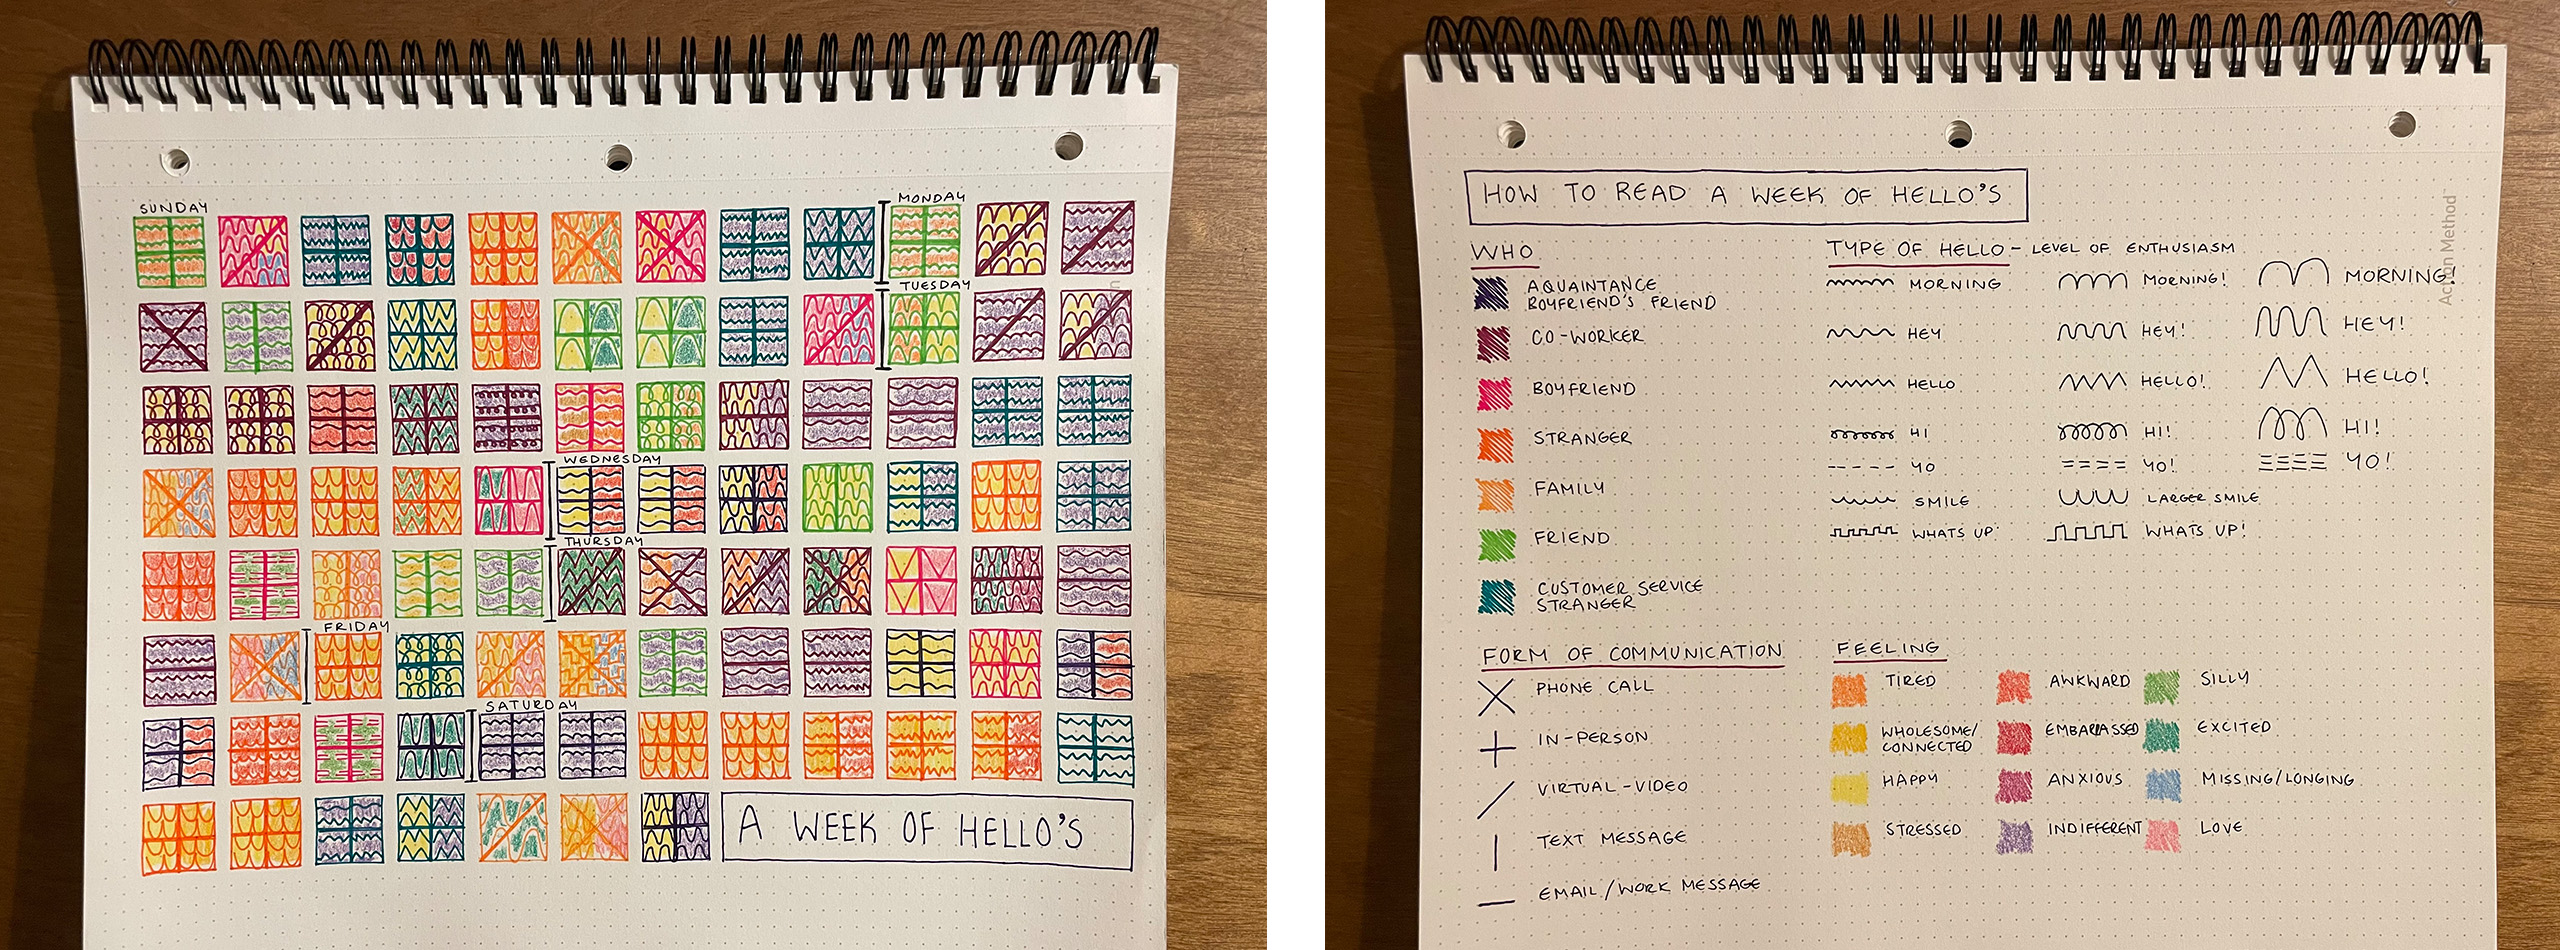 SUNDAY
MONDAY
TUESDAY
WEDNESDAY
THURSDAY
FRIDAY
SATURDAY
A WEEK OF HELLO'S
HOW TO READ A WEEK OF HELLO'S
WHO
AQUAINTANCE
BOYFRIEND'S FRIEND
CO-WORKER
BOYFRIEND
STRANGER
FAMILY
FRIEND
CUSTOMER SERVICE
STRANGER
TYPE OF HELLO - LEVEL OF ENTHUSIASM
MORNING MORNING! MORNING!
HEY HEY! HEY!
HELLO HELLO! HELLO!
HI HI! HI!
YO YO! YO!
SMILE LARGER SMILE
WHATS UP WHATS UP!
FORM OF COMMUNICATION
PHONE CALL
IN-PERSON
VIRTUAL-VIDEO
TEXT MESSAGE
EMAIL/WORK MESSAGE
FEELING
TIRED AWKWARD SILLY
WHOLESOME/
CONNECTED EMBARRASSED EXCITED
HAPPY ANXIOUS MISSING/LONGING
STRESSED INDIFFERENT LOVE
Action Method